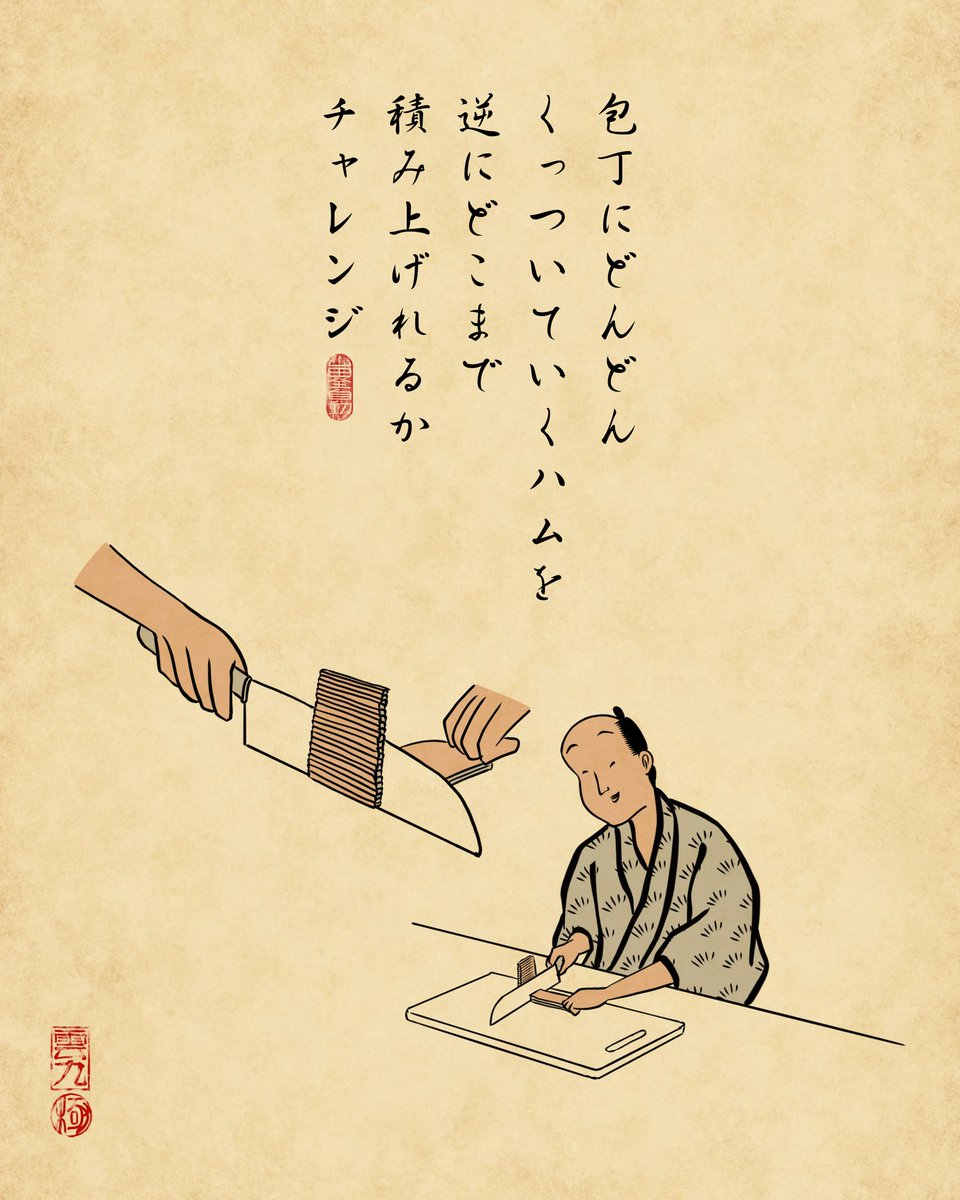 包丁にどんどん
くっついていくハムを
逆にどこまで
積み上げれるか
チャレンジ
雲九
極